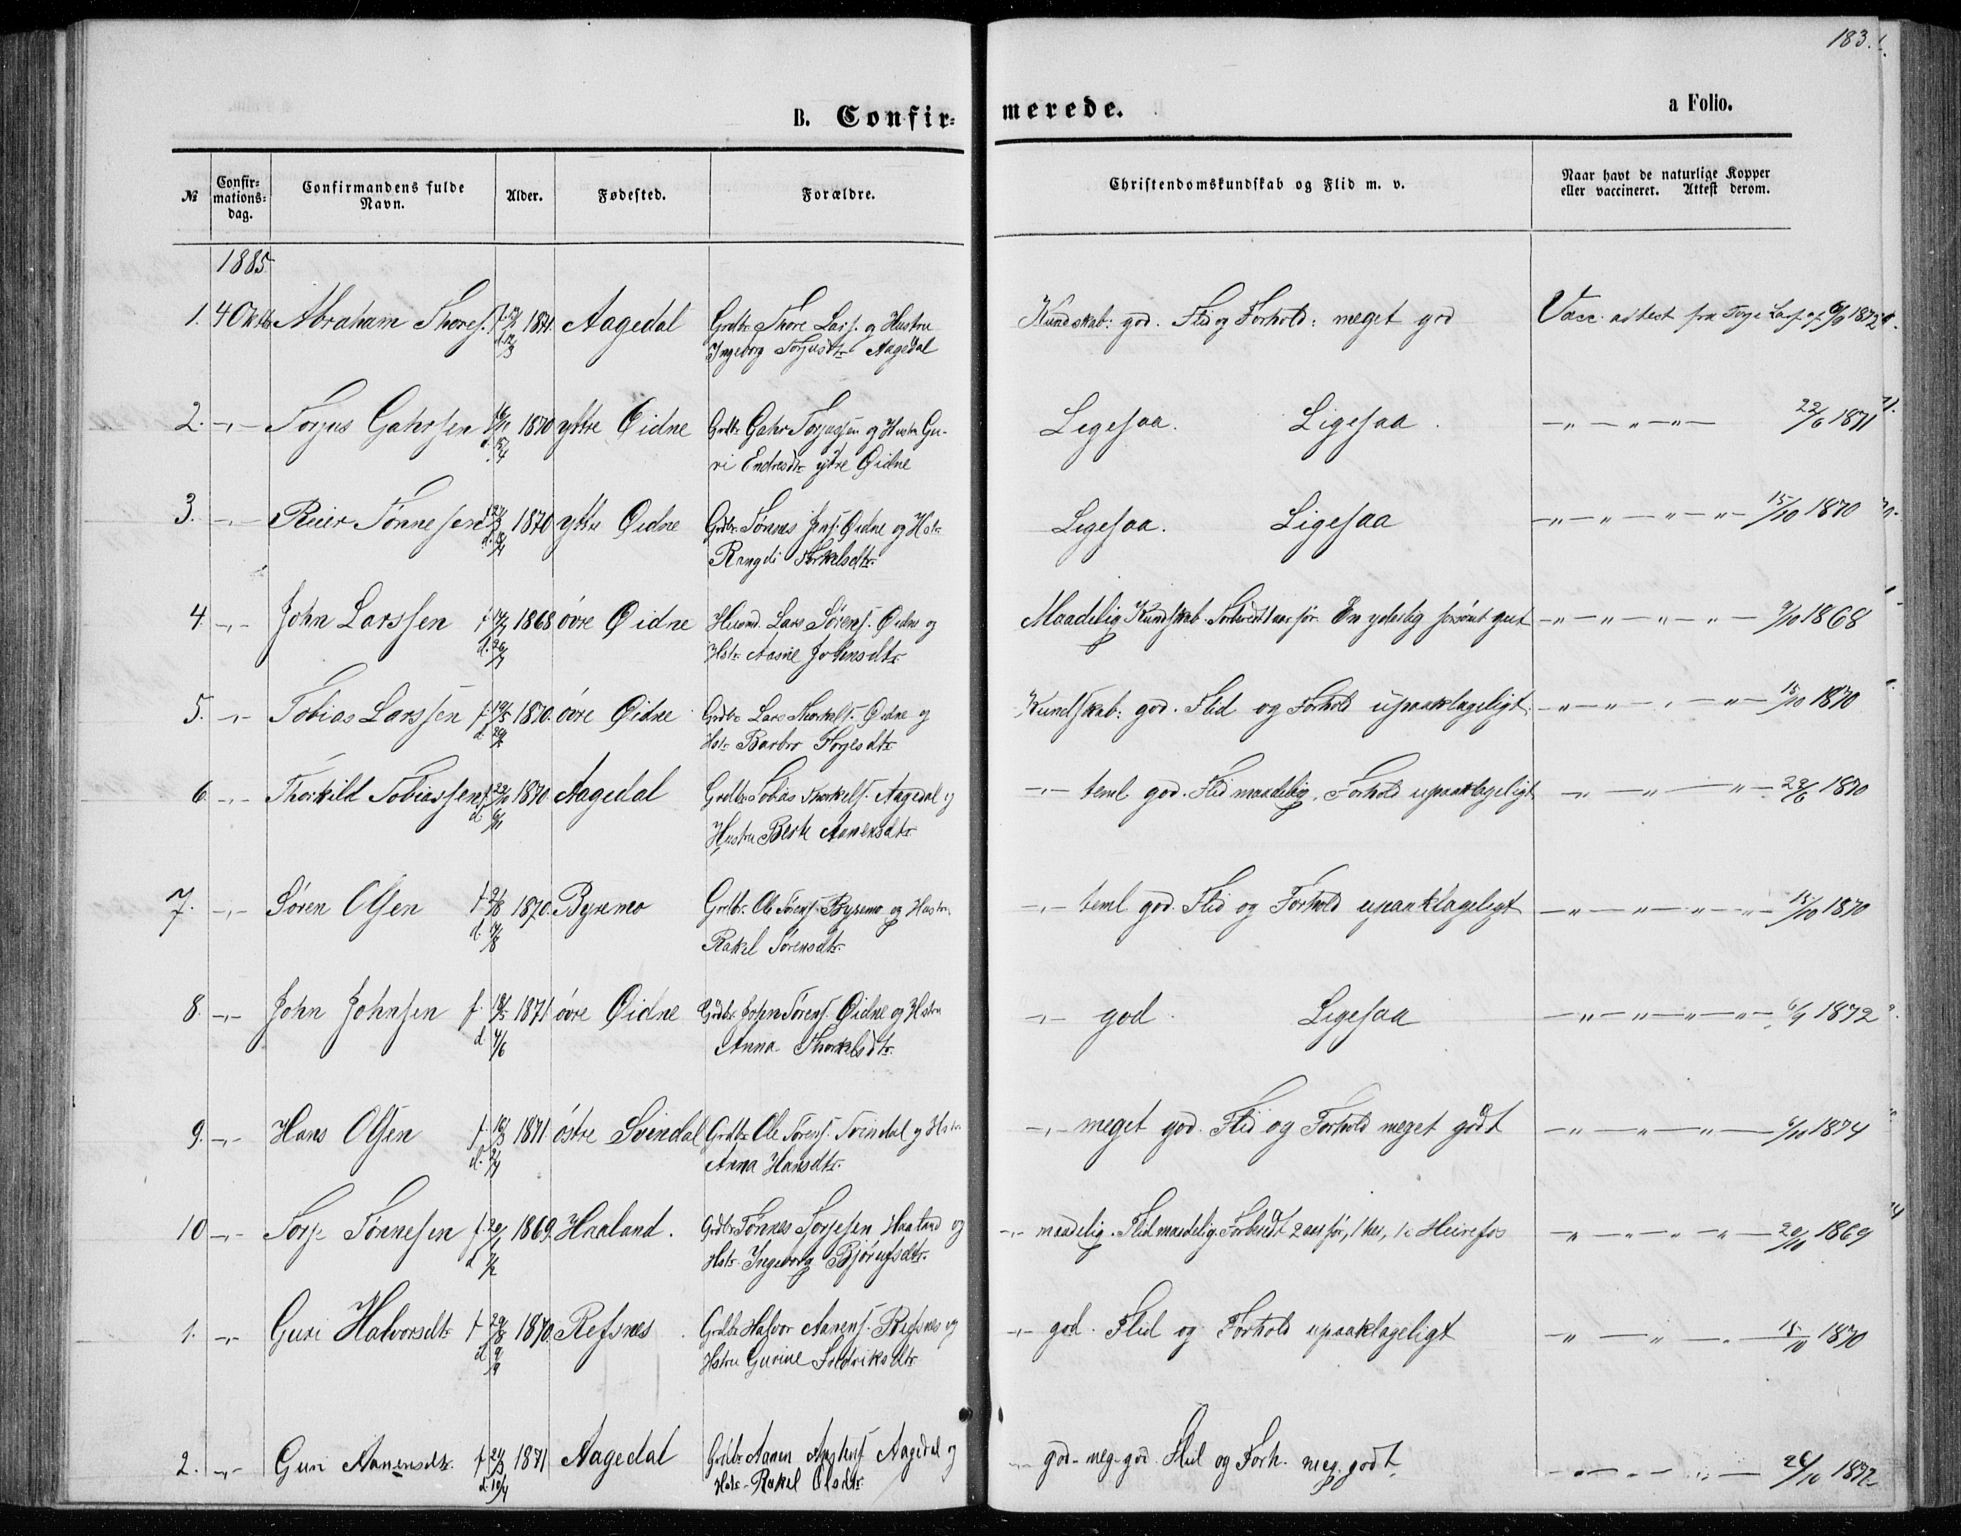 183.
B. Confir-
merede.
a Folio.
№
Confir-
mations-
dag.
Confirmandens fulde
Navn.
Alder.
Fødested.
Forældre.
Christendomskundskab og Flid m. v.
Naar havt de naturlige Kopper
eller vaccineret. Attest derom.
1885.
1. 4 Oktb Abraham Thores. 1871. Aagedal Grdbr Thore Lars. og Hustru
Ingeborg Torjusdtr Aagedal
Kundskab: god. Flid og Forhold: meget god
Vacc. attest fra 6/9 1872
2. -"- Torjus Gahrsen 1870 yttre Øidne Grdbr Gahr Torjussen og Hustru Gu-
ri Endresdtr ytre Øidne
Ligesaa. Ligesaa. 22/6 1871
3. -"- Reier Tønnesen 1870 yttre Øidne Grdbr. Tønnes Jens. Øidne og Hstr
Rangdi Torkelsdtr.
Ligesaa. Ligesaa 15/10 1870
4. -"- John Larssen 1868 øvre Øidne Husmd. Lars Sørens. Øidne og
Hstr Aasne Johensdtr
Maadelig Kundskab. 9/10 1868
5. -"- Tobias Larssen 1870. øvre Øidne Grdbr Lars Thorkels. Øidne og
Hstr Barbro Torjesdtr
Kundskab: god. Flid og Forhold upaaklageligt. 15/10 1870
6. -"- Thorkild Tobiassen 1870. Aagedal Grdbr Tobias Thorkels. Aagedal og
Hustru Berte Aanensdtr
-"- teml god. Flid maadelig. Forhold upaaklageligt 22/6 1870
7. -"- Søren Olsen 1870. Byremo Grdbr. Ole Sørens. Byremo og Hustru
Rakel Sørensdtr.
-"- teml god. Flid og Forhold upaaklageligt 15/10 1870
8. -"- John Johnsen f. 18/5 1871 øvre Øidne Grdbr. John Sørens. Øidne og Hstru
d 4/6 Anna Thorkelsdtr.
-"- god. Ligesaa 6/9 1872
9. -"- Hans Olsen 1871. østre Svindal Grdbr. Ole Sørens. Svindal og Hstr
Anna Hansdtr.
-"- meget god. Flid og Forhold meget godt 6/10 1874
10 -"- Torje Tønnesen 1869. Haaland. Grdbr Tønnes Torjesen Haaland og
Hstr. Ingeborg Bjørufsdtr.
-"- maadelig. Flid maadelig. Forberedt 2 aar før, 1 her, 1 i Heirefos 20/10 1869
1. -"- Guri Halvorsdtr 1870. Refsnes Grdbr Halvor Aanens. Refsnes og
Hstru Gurine Fredriksdtr
-"- god. Flid og Forhold upaaklageligt 15/10 1870
2. -"- Guri Aanensdtr. 1871 Aagedal Grdbr Aanen Aagedal og
Hstr. Rakel Olsdtr.
god - meg. god. Flid og Forh. meg. godt. 26/10 1872